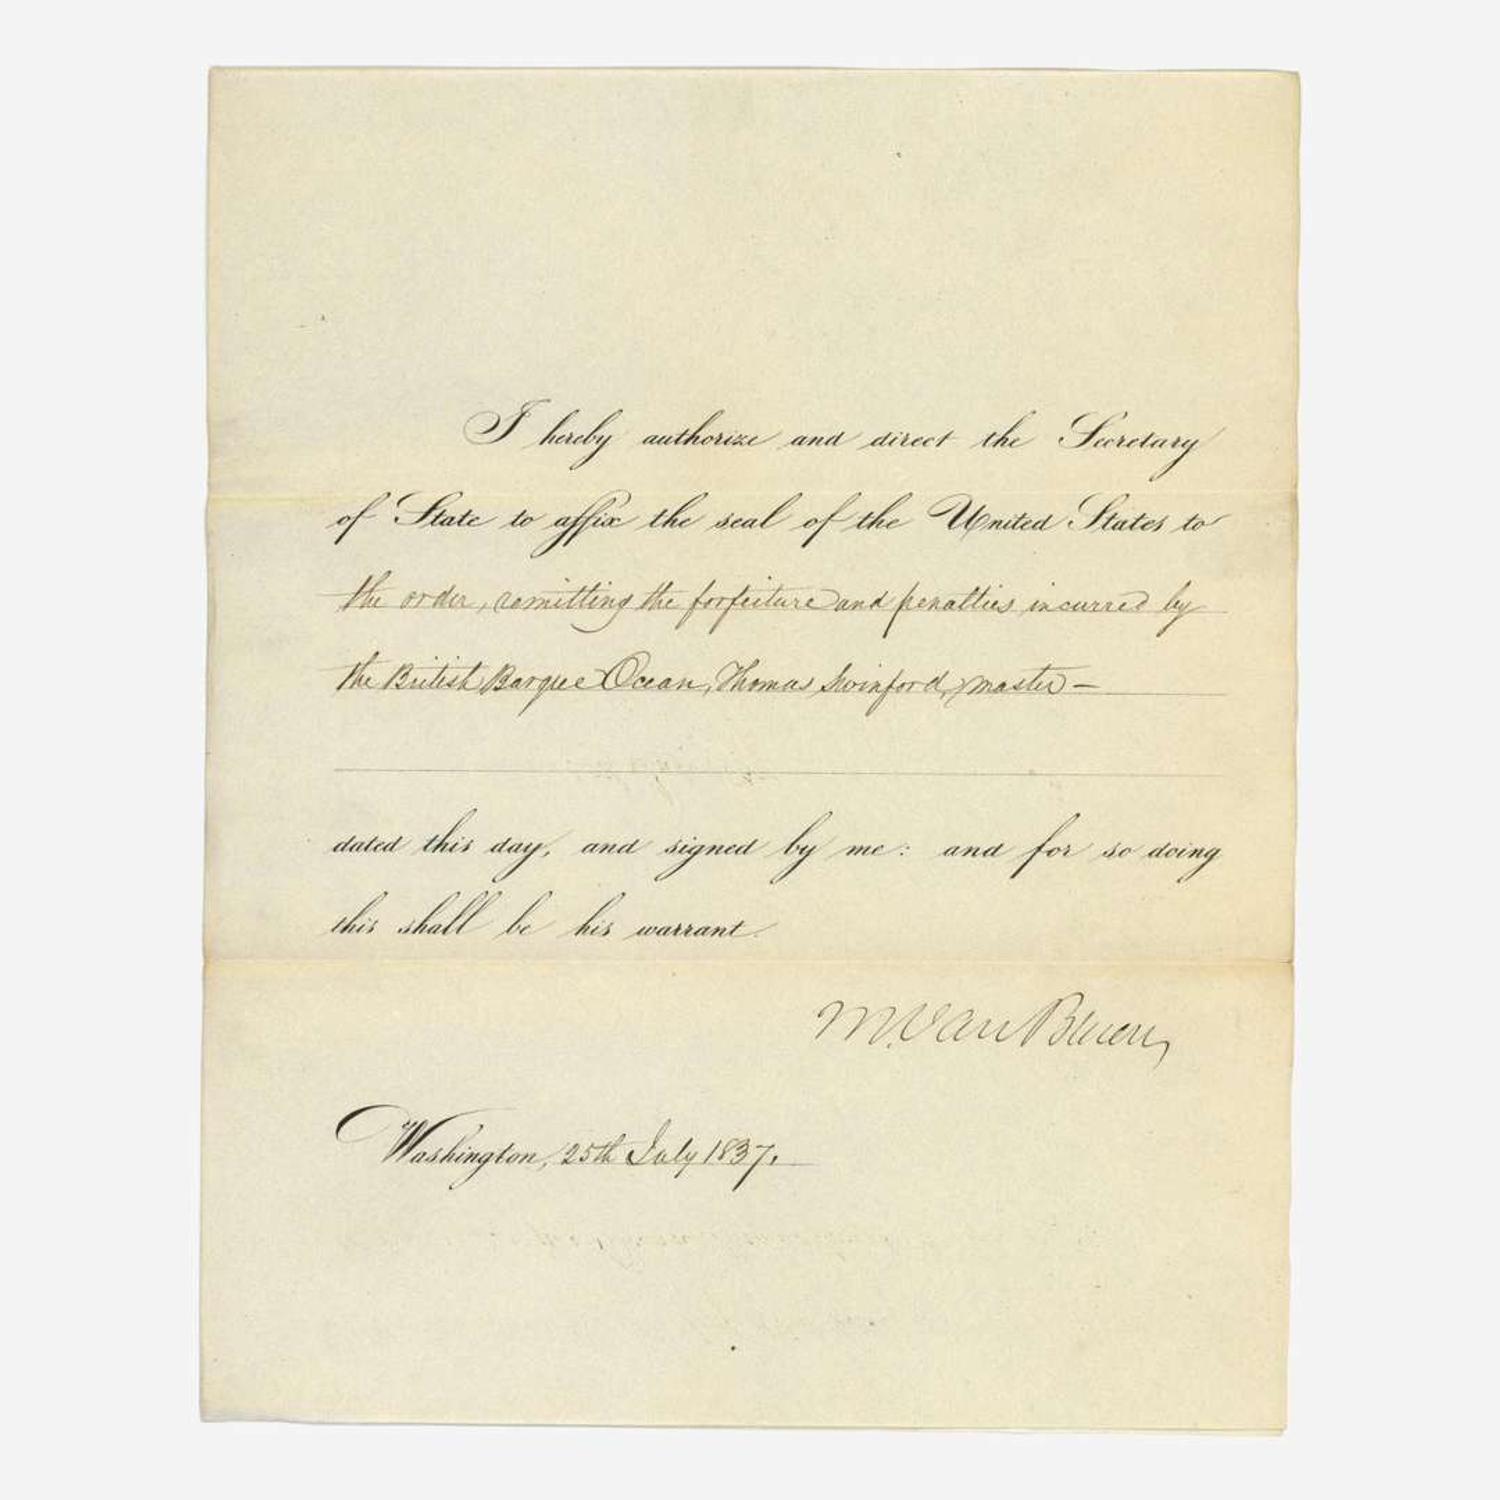 I hereby authorize and direct the Secretary
of State to affix the seal of the United States to
the order, remitting the forfeiture and penalties incurred by
the British Barque Ocean, Thomas Swinford, master —
dated this day, and signed by me: and for so doing
this shall be his warrant.
M. Van Buren
Washington, 25th July 1837.